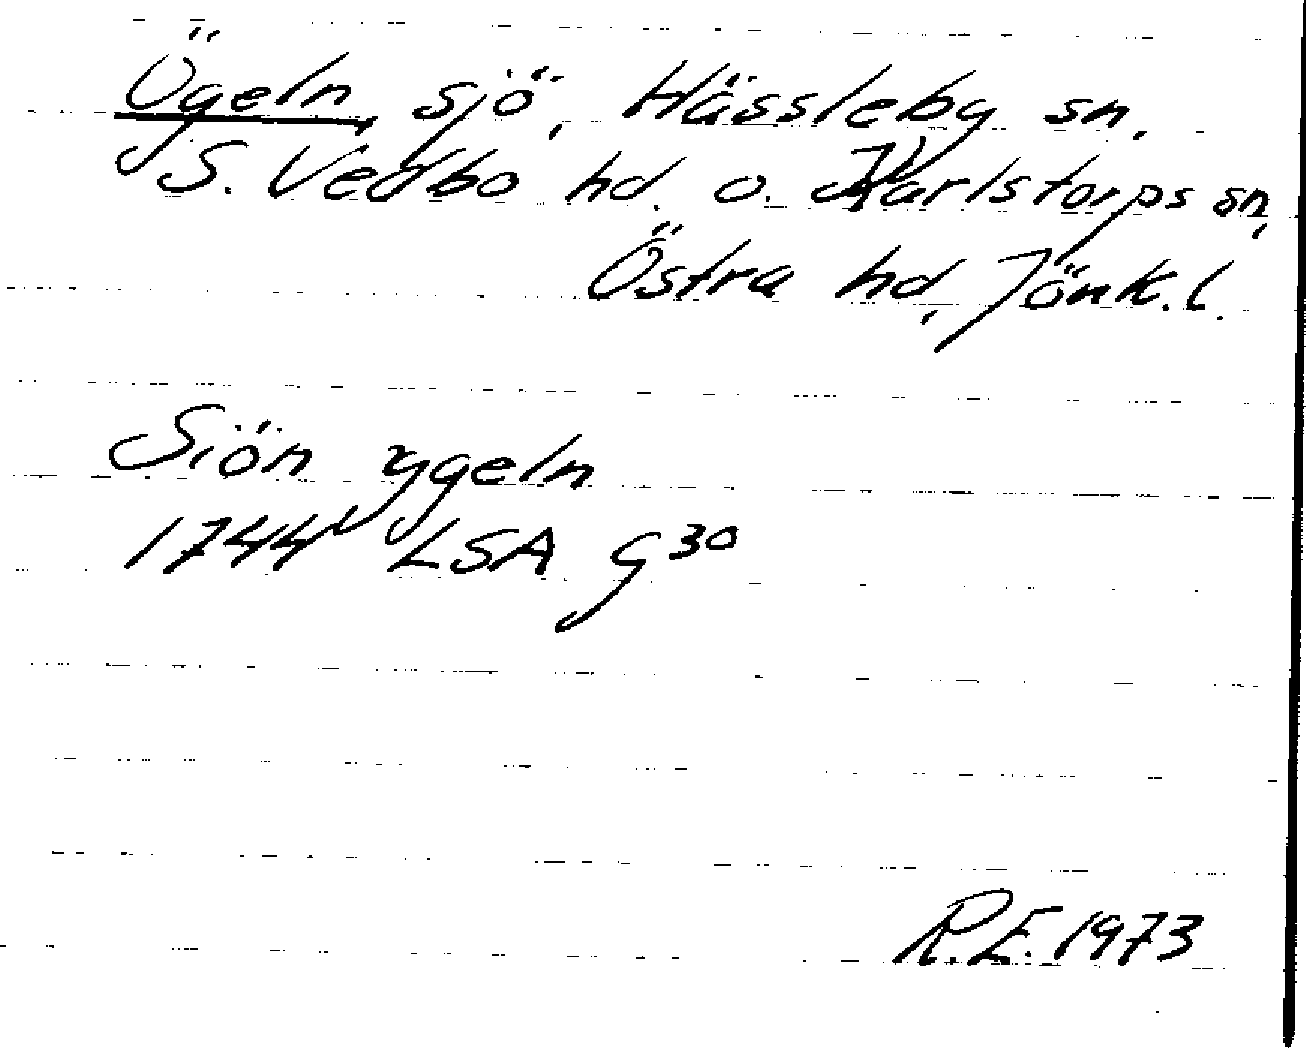 Ögeln, sjö, Hässleby sn,
S. Vedbo hd. o. Karlstorps sn,
Östra hd, Jönk. l.
Siön ygeln
1744 LSA G 30
R.E. 1973